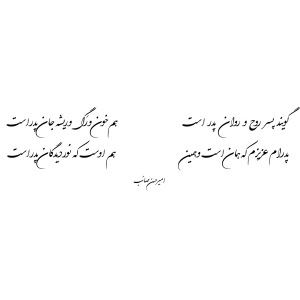 گویند پسر روح و روان پدر است هم خون و رگ و ریشه جان پدر است
پدرام عزیزم که همان است و همین هم اوست که نور دیدگان پدر است
امیرحسن صائب